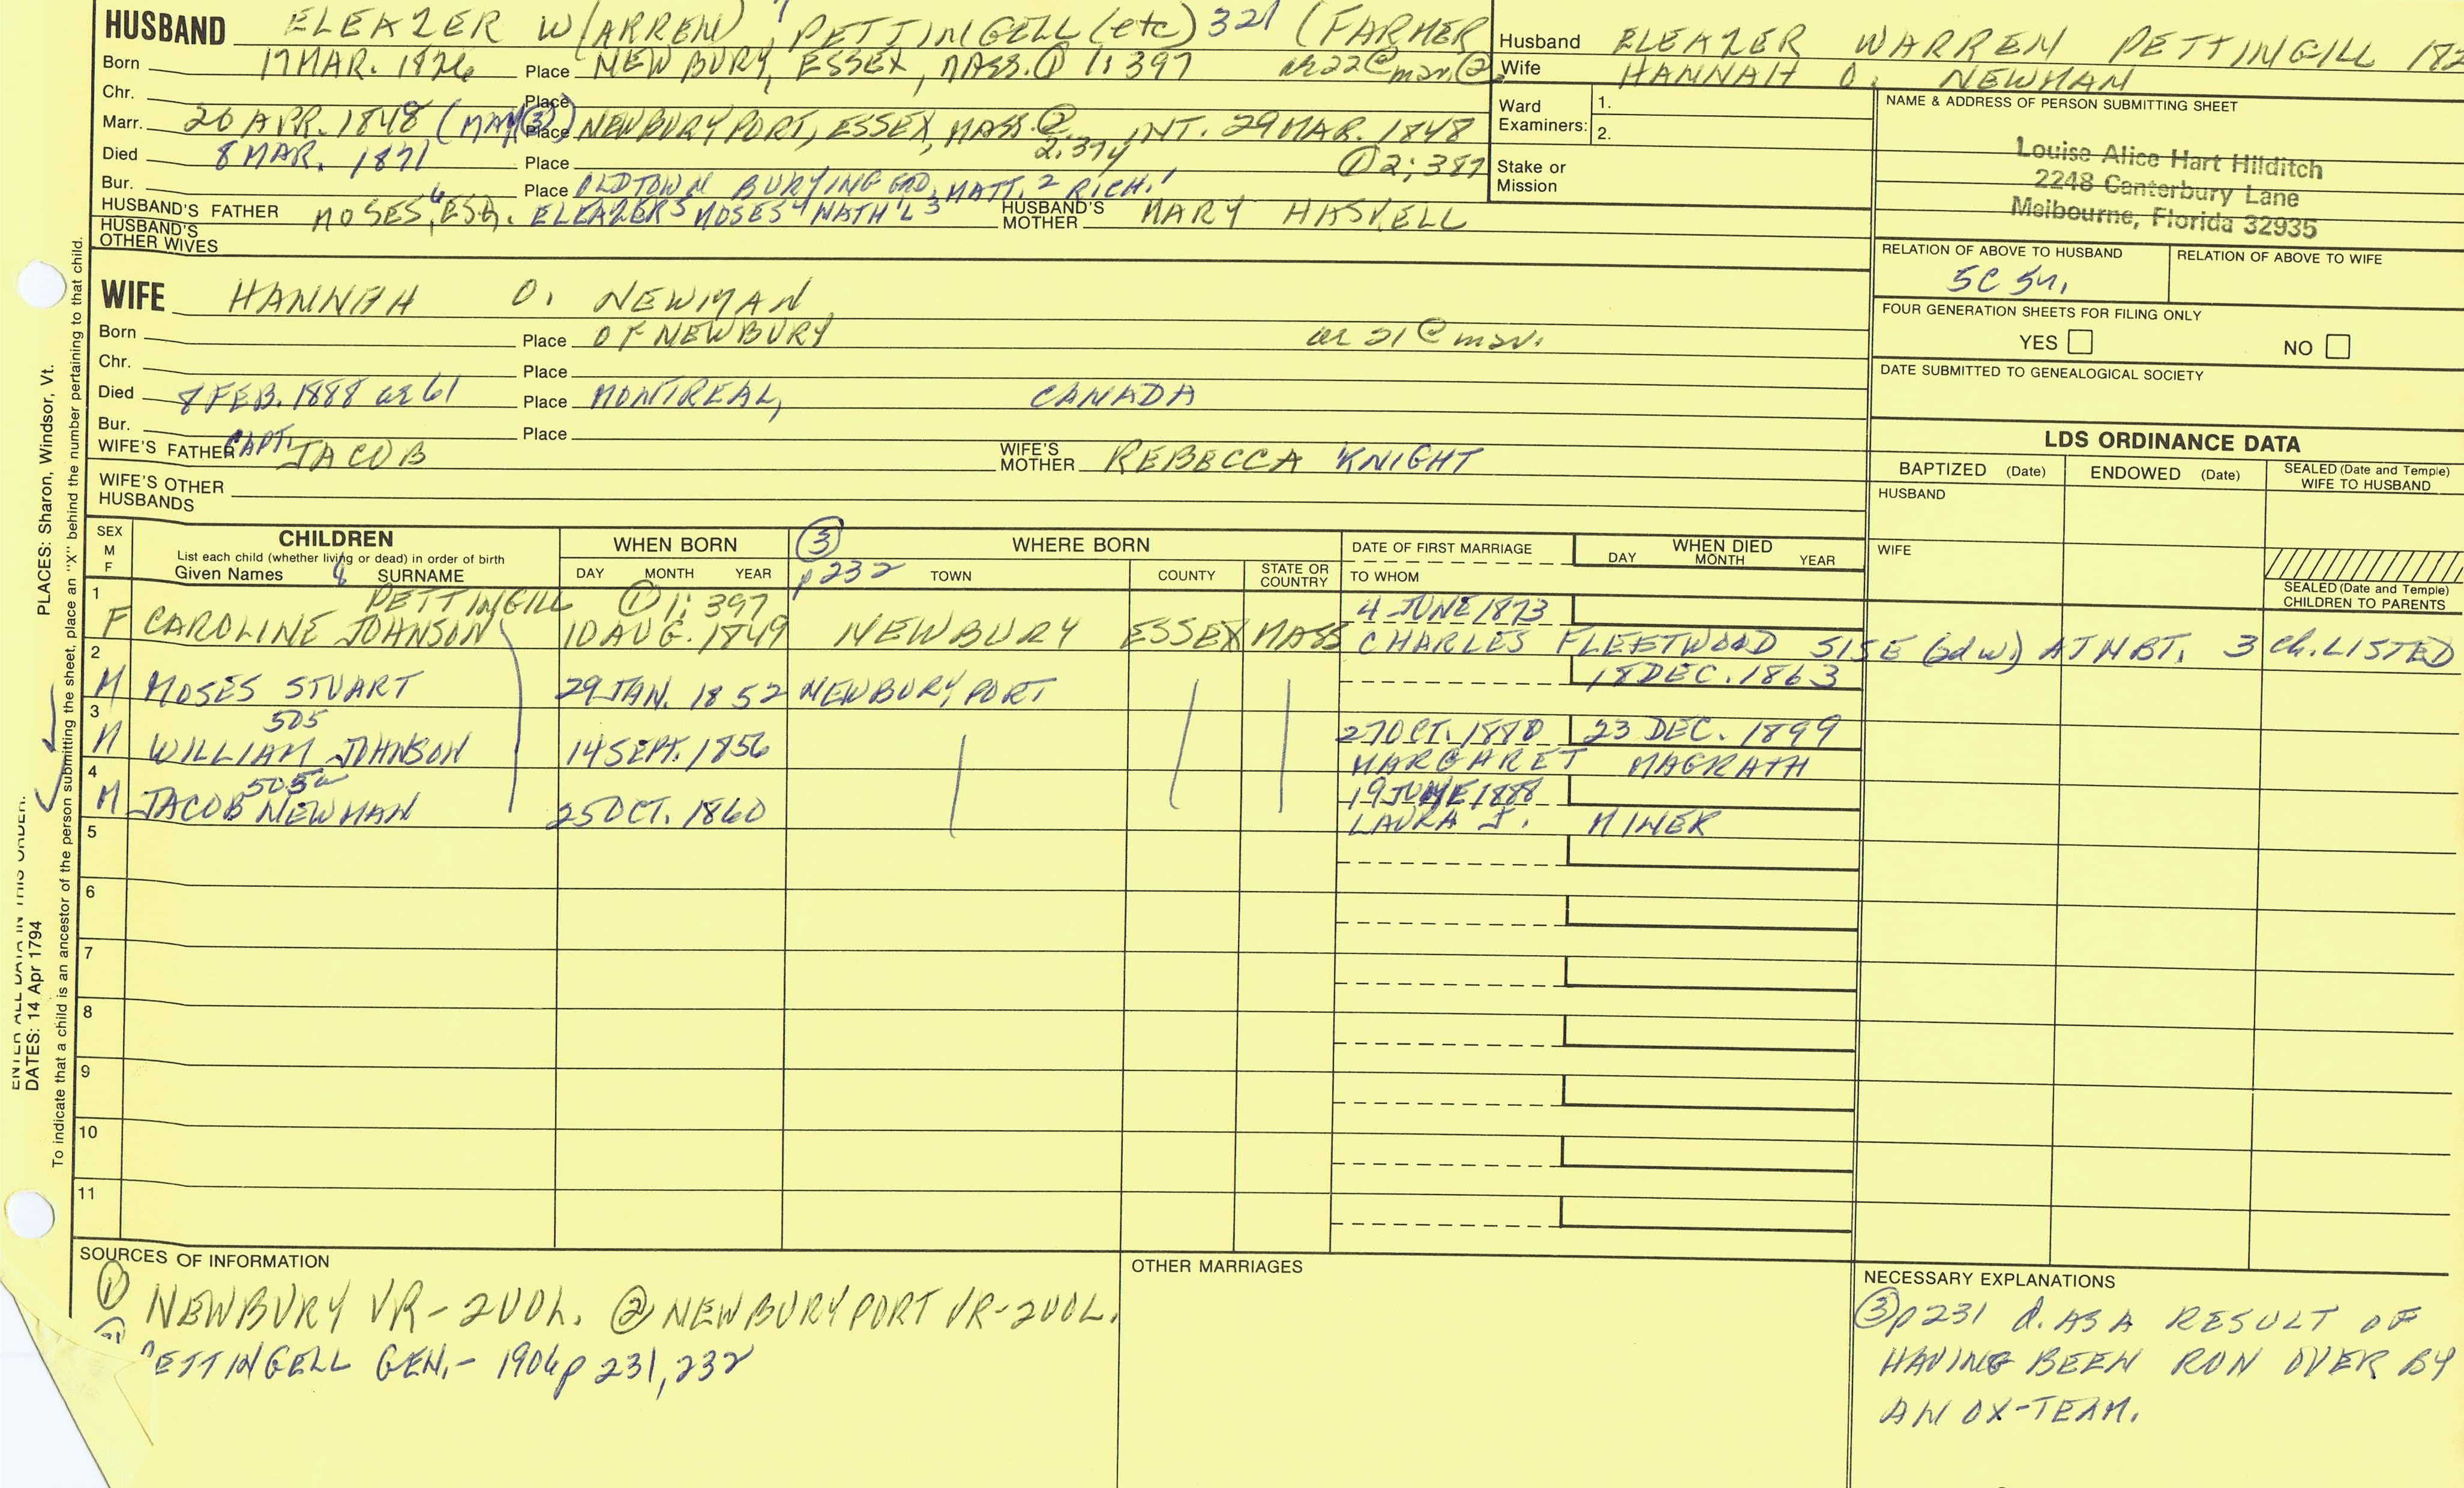 HUSBAND ELEAZER W(ARREN) 7 PETTINGELL (etc) 321 (FARMER
Born 17 MAR. 1826 Place NEWBURY, ESSEX, MASS. ① 1:397 ae 22 @ mar. ②
Chr. Place
Marr. 20 APR. 1848 (MAY ③) Place NEWBURYPORT, ESSEX, MASS. ② 2:374 INT. 29 MAR. 1848
Died 8 MAR. 1871 Place ① 2:387
Bur. Place OLDTOWN BURYING GRD,
HUSBAND'S FATHER MOSES 6, ESQ. ELEAZER 5 MOSES 4 NATH'L 3 MATT. 2 RICH. 1 HUSBAND'S MOTHER MARY HASKELL
HUSBAND'S OTHER WIVES
WIFE HANNAH O. NEWMAN
Born Place OF NEWBURY ae 21 @ mar.
Chr. Place
Died 8 FEB. 1888 ae 61 Place MONTREAL, CANADA
Bur. Place
WIFE'S FATHER CAPT. JACOB WIFE'S MOTHER REBECCA KNIGHT
WIFE'S OTHER HUSBANDS
Husband ELEAZER WARREN PETTINGILL 182
Wife HANNAH O. NEWMAN
Ward Examiners: 1.
2.
Stake or Mission
NAME & ADDRESS OF PERSON SUBMITTING SHEET
Louise Alice Hart Hilditch
2248 Canterbury Lane
Melbourne, Florida 32935
RELATION OF ABOVE TO HUSBAND RELATION OF ABOVE TO WIFE
5C 5r.
FOUR GENERATION SHEETS FOR FILING ONLY
YES NO
DATE SUBMITTED TO GENEALOGICAL SOCIETY
LDS ORDINANCE DATA
BAPTIZED (Date) ENDOWED (Date) SEALED (Date and Temple) WIFE TO HUSBAND
HUSBAND
WIFE
SEALED (Date and Temple) CHILDREN TO PARENTS
SEX M F CHILDREN WHEN BORN ③ WHERE BORN DATE OF FIRST MARRIAGE WHEN DIED
List each child (whether living or dead) in order of birth
Given Names 8 SURNAME DAY MONTH YEAR p 232 TOWN COUNTY STATE OR COUNTRY TO WHOM DAY MONTH YEAR
1 PETTINGILL ① 1:397 4 JUNE 1873
F CAROLINE JOHNSON 10 AUG. 1849 NEWBURY ESSEX MASS CHARLES FLEETWOOD SISE (2d w) AT NBT. 3 ch. LISTED
2 18 DEC. 1863
M MOSES STUART 29 JAN. 1852 NEWBURYPORT
3 505 27 OCT. 1880 23 DEC. 1899
M WILLIAM JOHNSON 14 SEPT. 1856 MARGARET MAGRATH
4 505a 19 JUNE 1888
M JACOB NEWMAN 25 OCT. 1860 LAURA J. MINER
5
6
7
8
9
10
11
SOURCES OF INFORMATION
① NEWBURY VR - 2 VOL. ② NEWBURYPORT VR - 2 VOL.
ETTINGELL GEN. - 1906 p 231, 232
OTHER MARRIAGES
NECESSARY EXPLANATIONS
③ p 231 d. AS A RESULT OF
HAVING BEEN RUN OVER BY
AN OX-TEAM.
ENTER ALL DATA IN THIS ORDER:
DATES: 14 Apr 1794
PLACES: Sharon, Windsor, Vt.
To indicate that a child is an ancestor of the person submitting the sheet, place an "X" behind the number pertaining to that child.